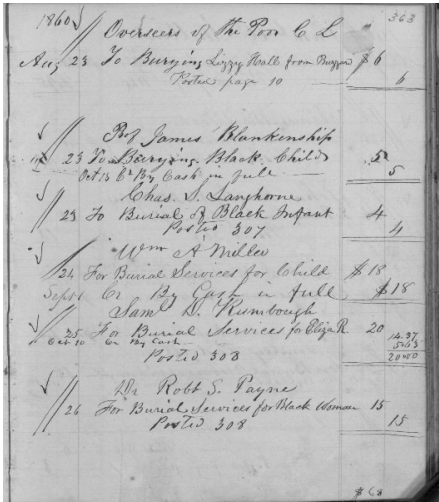 363
1860 Overseers of The Poor C L "
Aug 23 To Burying Lizzy Hall from $ 6
Posted page 10 6
Prof James Blankenship
23 To Burying Black Child 5
Oct 13 Cr By Cash in full 5
Chas. S. Langhorne
23 To Burial of Black Infant 4
Posted 307 4
Wm A Miller
24 For Burial Services for Child $ 18
Sept 1 Cr By Cash in full $ 18
Saml D. Rumbough
25 For Burial Services for Eliza R. 20 14.37
Oct 10 Cr By Cash 5.63
Posted 308 20.00
Dr Robt S. Payne
26 For Burial Services for Black Woman 15
Posted 308 15
$ 68